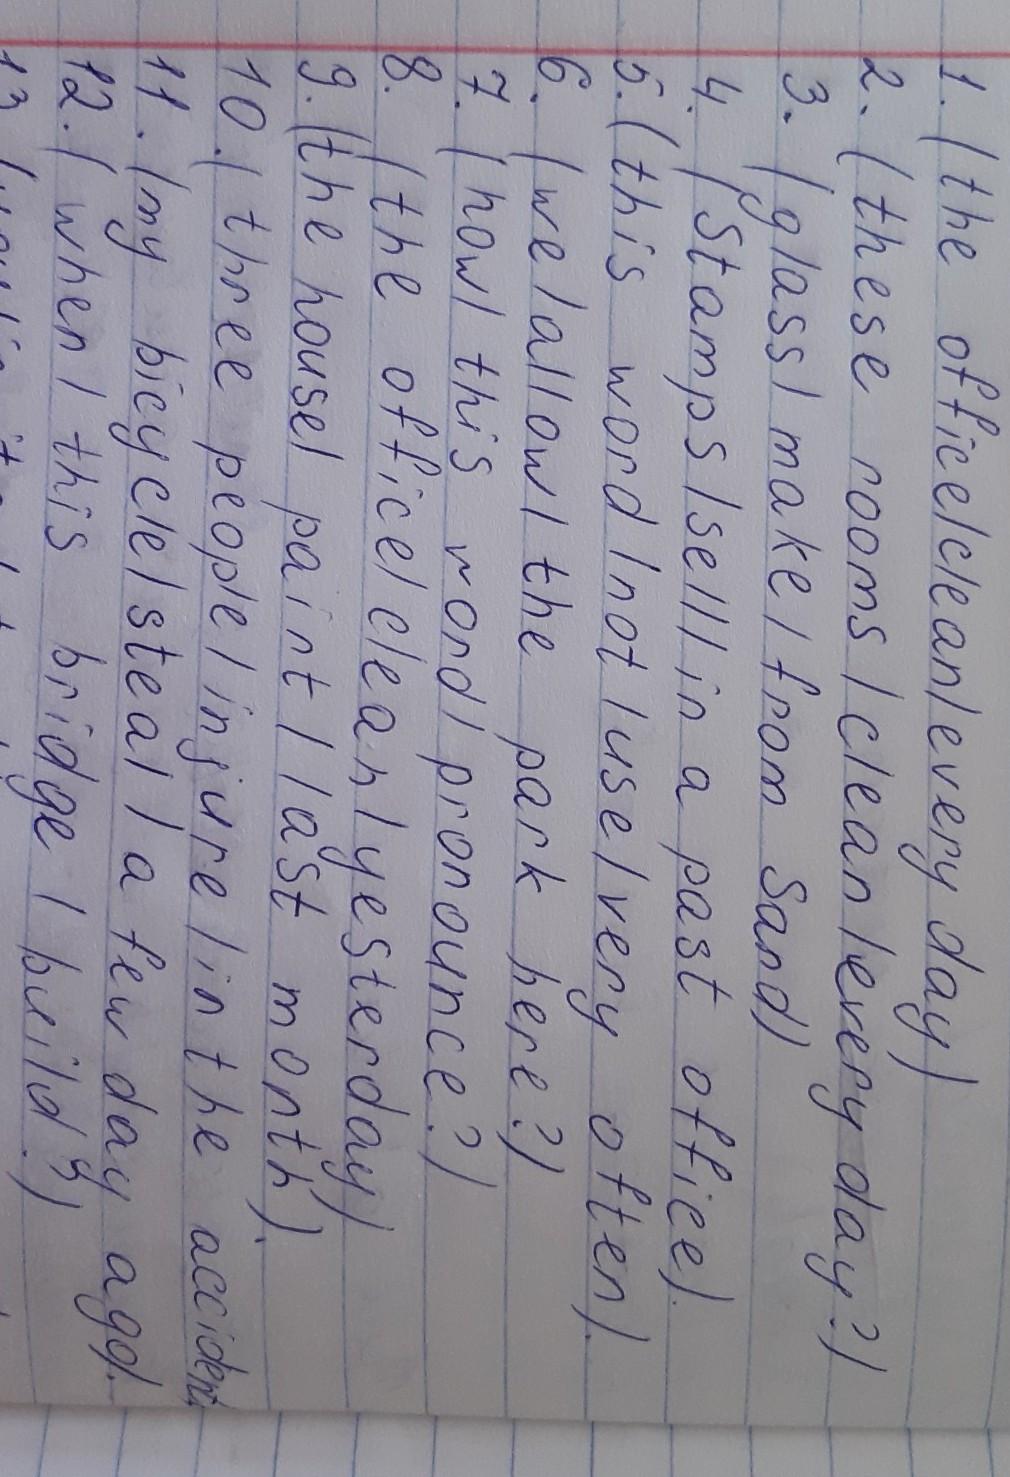 1. (the office/clean/every day)
2. (these rooms/clean/every day?)
3. (glass/make/from sand)
4. (stamps/sell/in a past office).
5. (this word/not/use/very often).
6. (we/allow/the park here?)
7. (how/this word/pronounce?)
8. (the office/clean/yesterday)
9. (the house/paint/last month).
10. (three people/injure/in the accident
11. (my bicycle/steal/a few day ago).
12. (when/this bridge/build?)
13